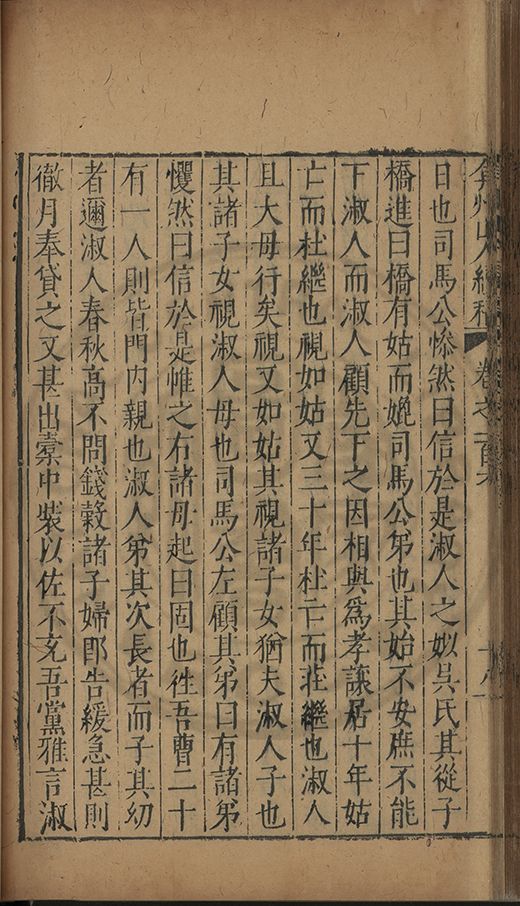 弇州山人續稿 卷之一百六 十八
日也司馬公慘然曰信於是淑人之姒吳氏其從子
橋進曰橋有姑而娩司馬公弟也其始不安庶不能
下淑人而淑人顧先下之因相與爲孝讓居十年姑
亡而杜繼也視如姑又三十年杜亡而莊繼也淑人
且大母行矣視又如姑其視諸子女猶夫淑人子也
其諸子女視淑人母也司馬公左顧其弟曰有諸弟
戄然曰信於是帷之右諸母起曰固也徃吾曹二十
有一人則皆門内親也淑人弟其次長者而子其幼
者邇淑人春秋高不問錢穀諸子婦郎告緩急甚則
徹月奉貸之又甚出橐中裝以佐不充吾黨雅言淑